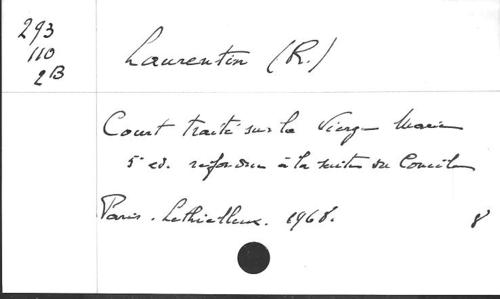 293
110
2B
Laurentin (R.)
Court traité sur la Vierge Marie
5e ed. refondue à la suite du Concile
Paris. Lethielleux. 1968. 8